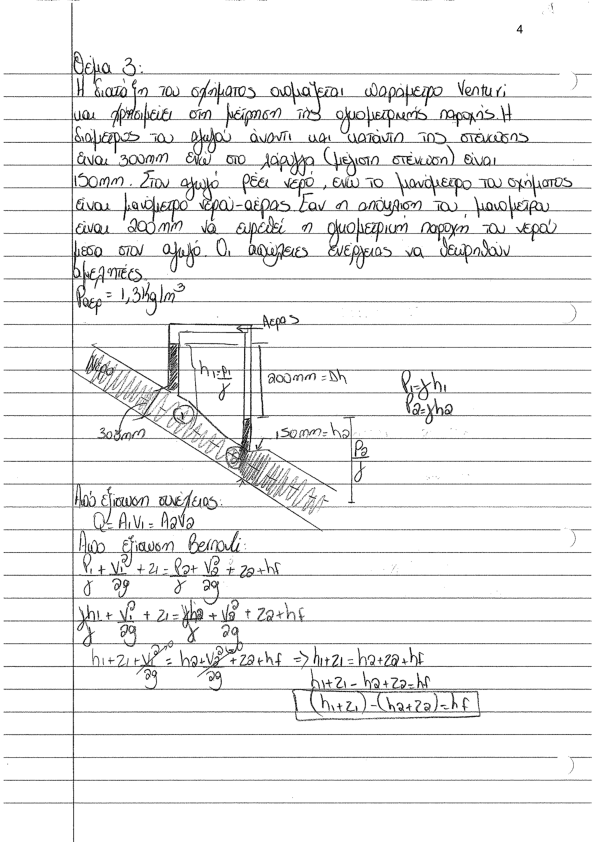 4
Θέμα 3:
Η διάταξη του σχήματος ονομάζεται παράμετρο Venturi
και χρησιμεύει στη μέτρηση της ογκομετρικής παροχής. Η
διάμετρος του αγωγού ανάντι και κατάντη της στένωσης
είναι 300mm ενώ στο λάρυγγα (μέγιστη στένωση) είναι
150mm. Στον αγωγό ρέει νερό, ενώ το μανόμετρο του σχήματος
είναι μανόμετρο νερού-αέρας. Εαν η απόκλιση του μανομετρου
είναι 200mm να ευρεθεί η ογκομετρική παροχή του νερού
μεσα στον αγωγό. Οι απώλειες ενέργειας να θεωρηθούν
αμελητέες.
Ραερ = 1,3Kg/m³
Αερας
Νερο
h1=P1/γ
200mm=Δh
P1=γh1
P2=γh2
300mm
1
2
150mm=h2
P2/γ
Από εξίσωση συνέχειας:
Q=A1V1=A2V2
Από εξίσωση Bernouli:
P1/γ + V1²/2g + z1 = P2/γ + V2²/2g + z2+hf
γh1/γ + V1²/2g + z1 = γh2/γ + V2²/2g + z2+hf
h1+z1+V1²/2g = h2+V2²/2g +z2+hf => h1+z1=h2+z2+hf
h1+z1-h2+z2=hf
(h1+z1)-(h2+z2)=hf